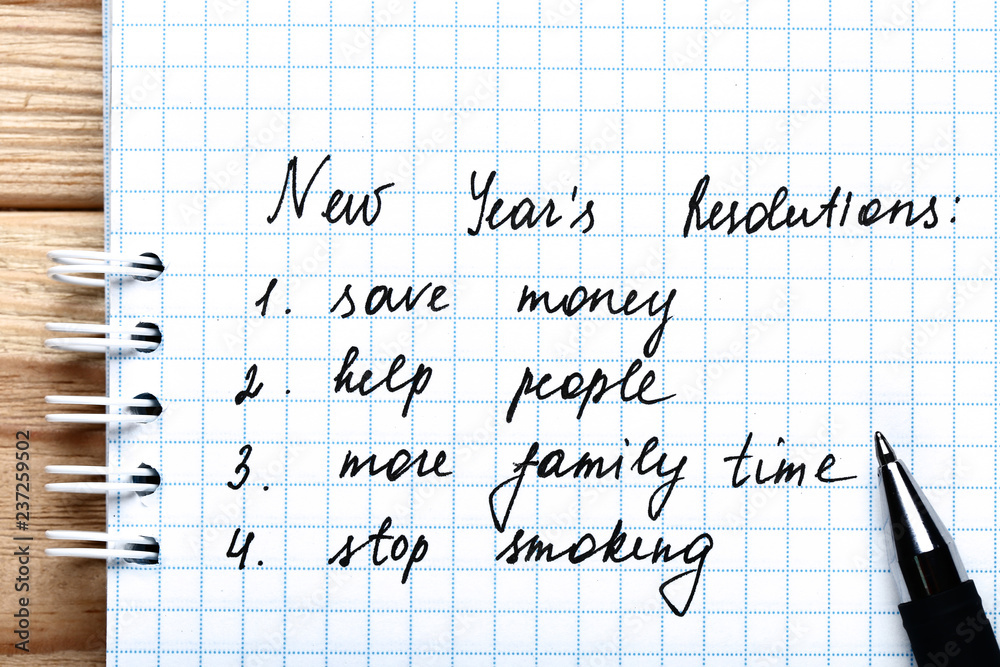 New Year's Resolutions:
1. save money
2. help people
3. more family time
4. stop smoking
Adobe Stock | #237259502